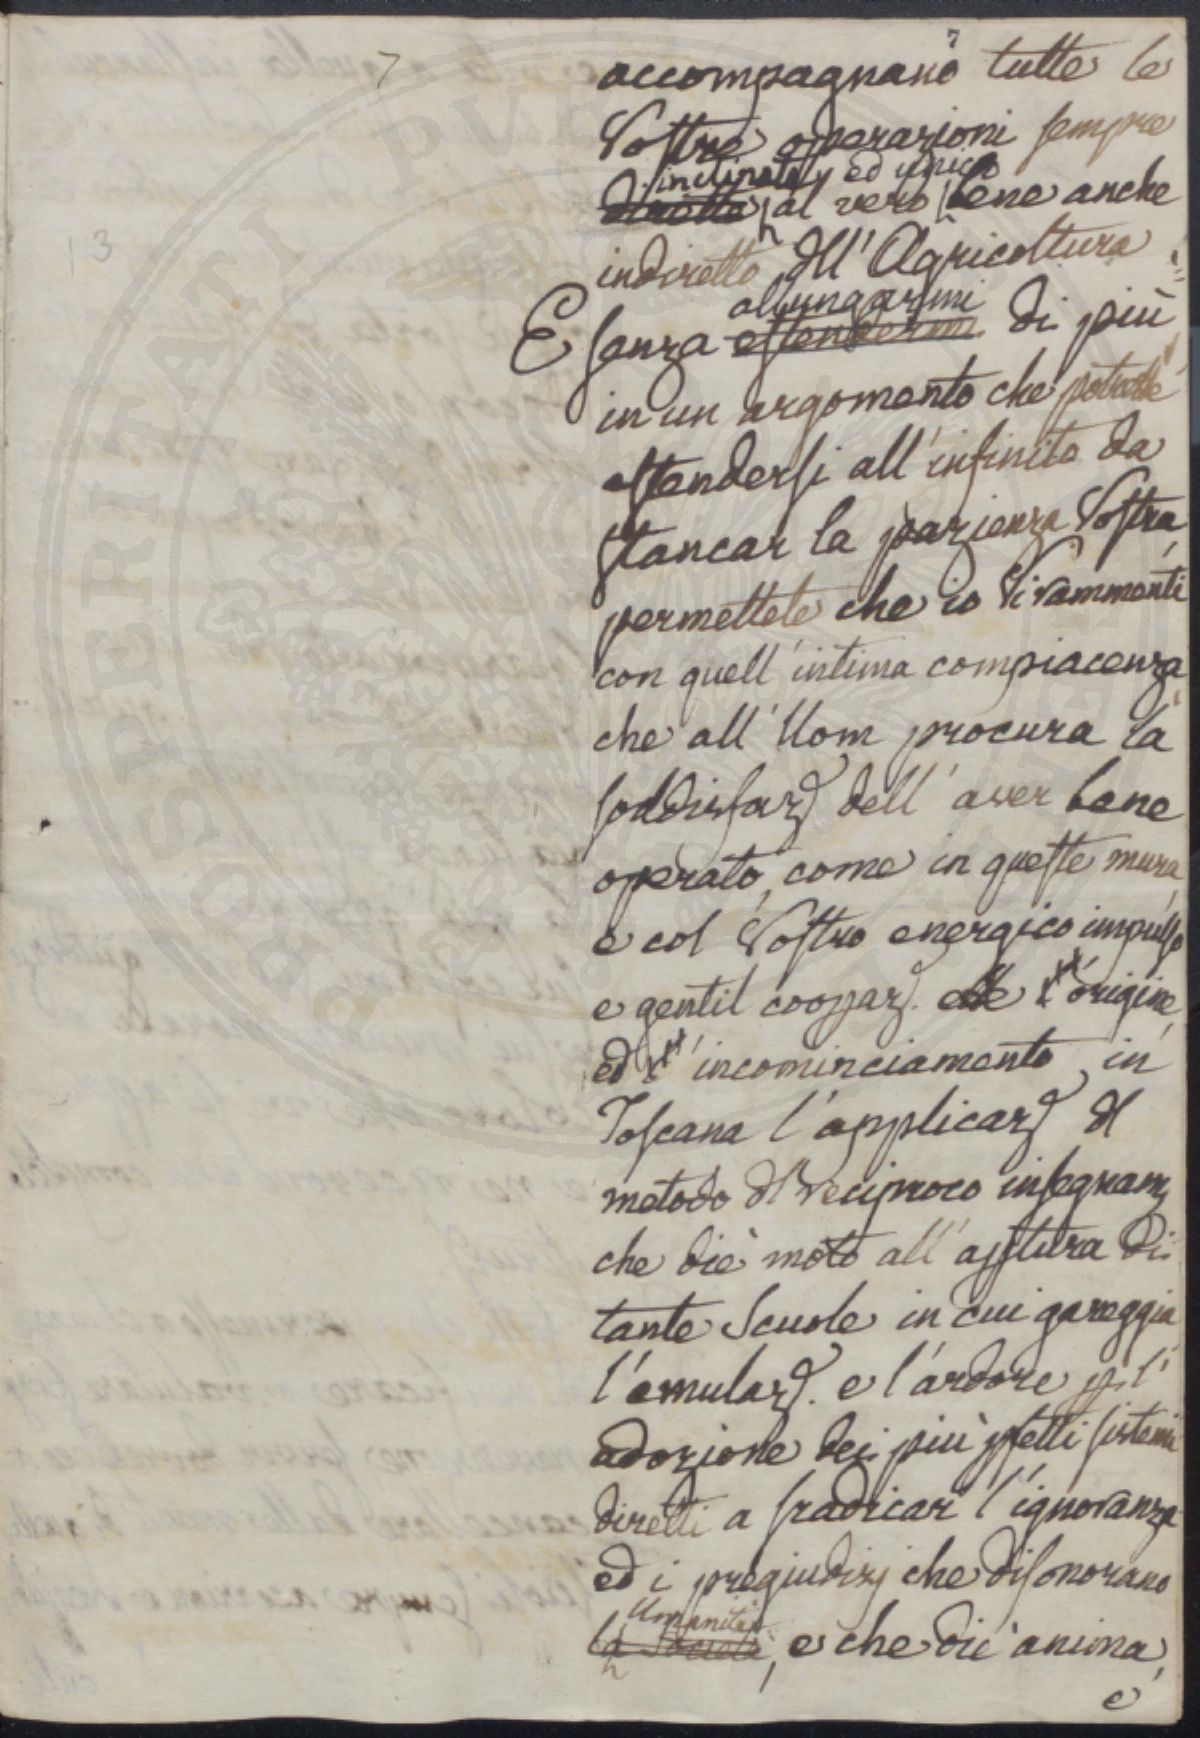 7
7
accompagnano tutte le
Vostre operazioni sempre
inclinate ed unico
dirette al vero bene anche
indiretto dell' Agricoltura
allungarmi
E senza estendermi di più
in un argomento che potrebbe
estendersi all'infinito da
stancar la pazienza Vostra,
permettete che io Vi rammenti
con quell'intima compiacenza
che all'Uom procura la
soddisfaz. dell'aver bene
operato, come in queste mura,
e col Vostro energico impulso
e gentil cooperaz. ebbe l'origine,
ed l'incominciamento in
Toscana l'applicaz. del
metodo di reciproco insegnam.
che diè moto all'apertura di
tante Scuole in cui gareggia
l'emulaz. e l'ardore p. l'
adozione dei più pfetti sistemi
diretti a sradicar l'ignoranza
ed i pregiudizj che disonorano
Umanità
la Società, e che diè anima,
e
13
PROSPERITATI PUBL